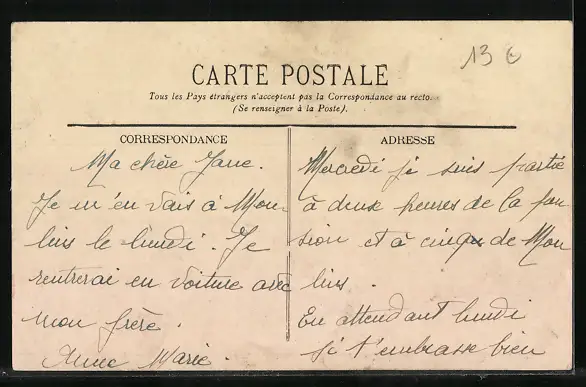 13 €
CARTE POSTALE
Tous les Pays étrangers n'acceptent pas la Correspondance au recto.
(Se renseigner à la Poste).
CORRESPONDANCE
Ma chère Jane.
Je m'en vais à Mou-
lins le lundi. Je
rentrerai en voiture avec
mon frère.
Anne Marie.
ADRESSE
Mercredi je suis partie
à deux heures de la pen
sion et à cinq de Mou
lins.
En attendant lundi
je t'embrasse bien